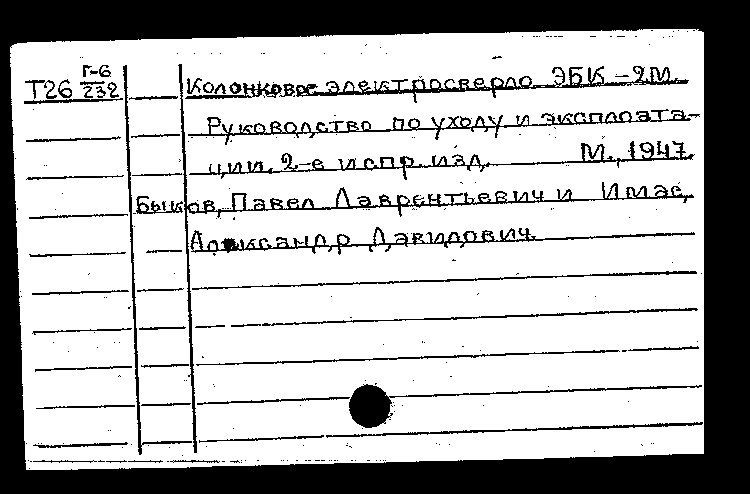 Т26 Г-6/232 Колонковое электросверло ЭБК-2М.
Руководство по уходу и эксплоата-
ции. 2-е испр. изд. М., 1947.
Быков, Павел Лаврентьевич и Имас,
Александр Давидович